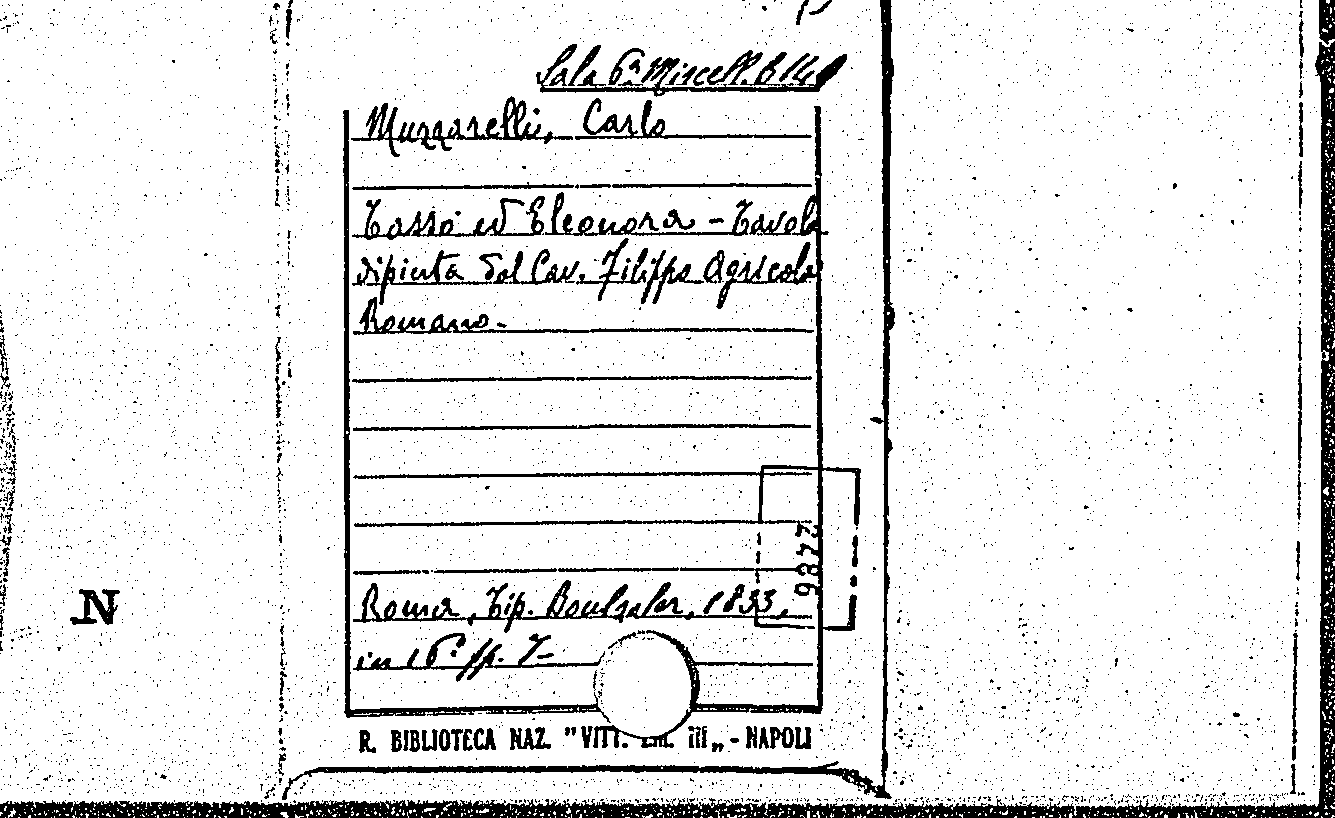 Sala 6ª Miscell. B 14
Muzzarelli, Carlo
Tasso ed Eleonora - Tavola
dipinta dal Cav. Filippo Agricola
Romano.
Roma, Tip. Boulzaler, 1833,
in 16º pp. 7-
R. BIBLIOTECA NAZ. "VITT. EM. III„ - NAPOLI
N